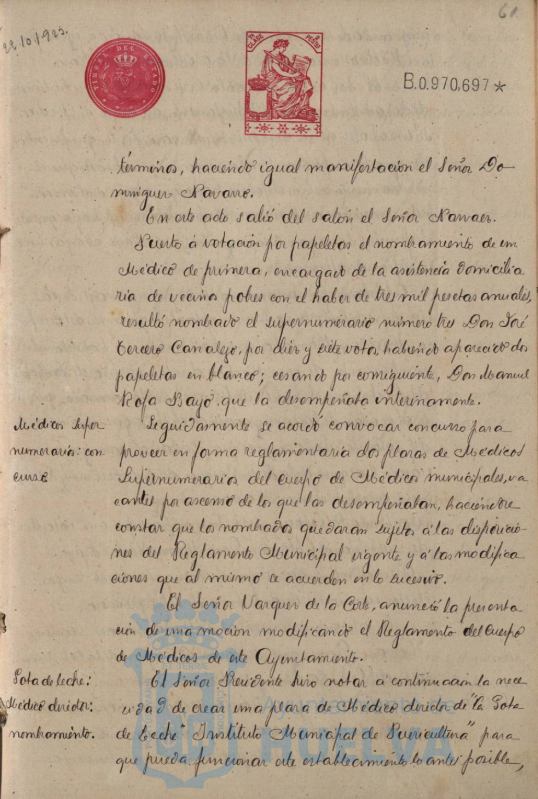 22.10.1923.
61.
TIMBRE DEL ESTADO
8ª CLASE
PESETAS
B.0.970.697*
términos, haciendo igual manifestación el Señor Do-
minguez Navarro.
En este acto salió del salón el Señor Narvaez.
Puesto á votación por papeletas el nombramiento de un
Médico de primera, encargado de la asistencia domicilia-
ria de vecinos pobres con el haber de tres mil pesetas anuales,
resultó nombrado el supernumerario número tres Don José
Tercero Canalejo, por diez y siete votos, habiendo aparecido dos
papeletas en blanco; cesando por consiguiente, Don Manuel
Rofa Bayo que la desempeñaba interinamente.
Médicos super
numerarios: con
curso
Seguidamente se acordó convocar concurso para
proveer en forma reglamentaria dos plazas de Médicos
Supernumerarios del cuerpo de Médicos municipales, va-
cantes por ascenso de los que las desempeñaban, haciéndose
constar que los nombrados quedarán sujetos á las disposicio-
nes del Reglamento Municipal vigente y á las modifica-
ciones que al mismo se acuerden en lo sucesivo.
El Señor Vazquez de la Corte, anunció la presenta-
ción de una moción modificando el Reglamento del Cuerpo
de Médicos de este Ayuntamiento.
Gota de leche:
Médico director:
nombramiento.
El Señor Presidente hizo notar á continuación la nece-
sidad de crear una plaza de Médico director de "la Gota
de Leche" "Instituto Municipal de Puericultura" para
que pueda funcionar este establecimiento lo antes posible,
HUELVA